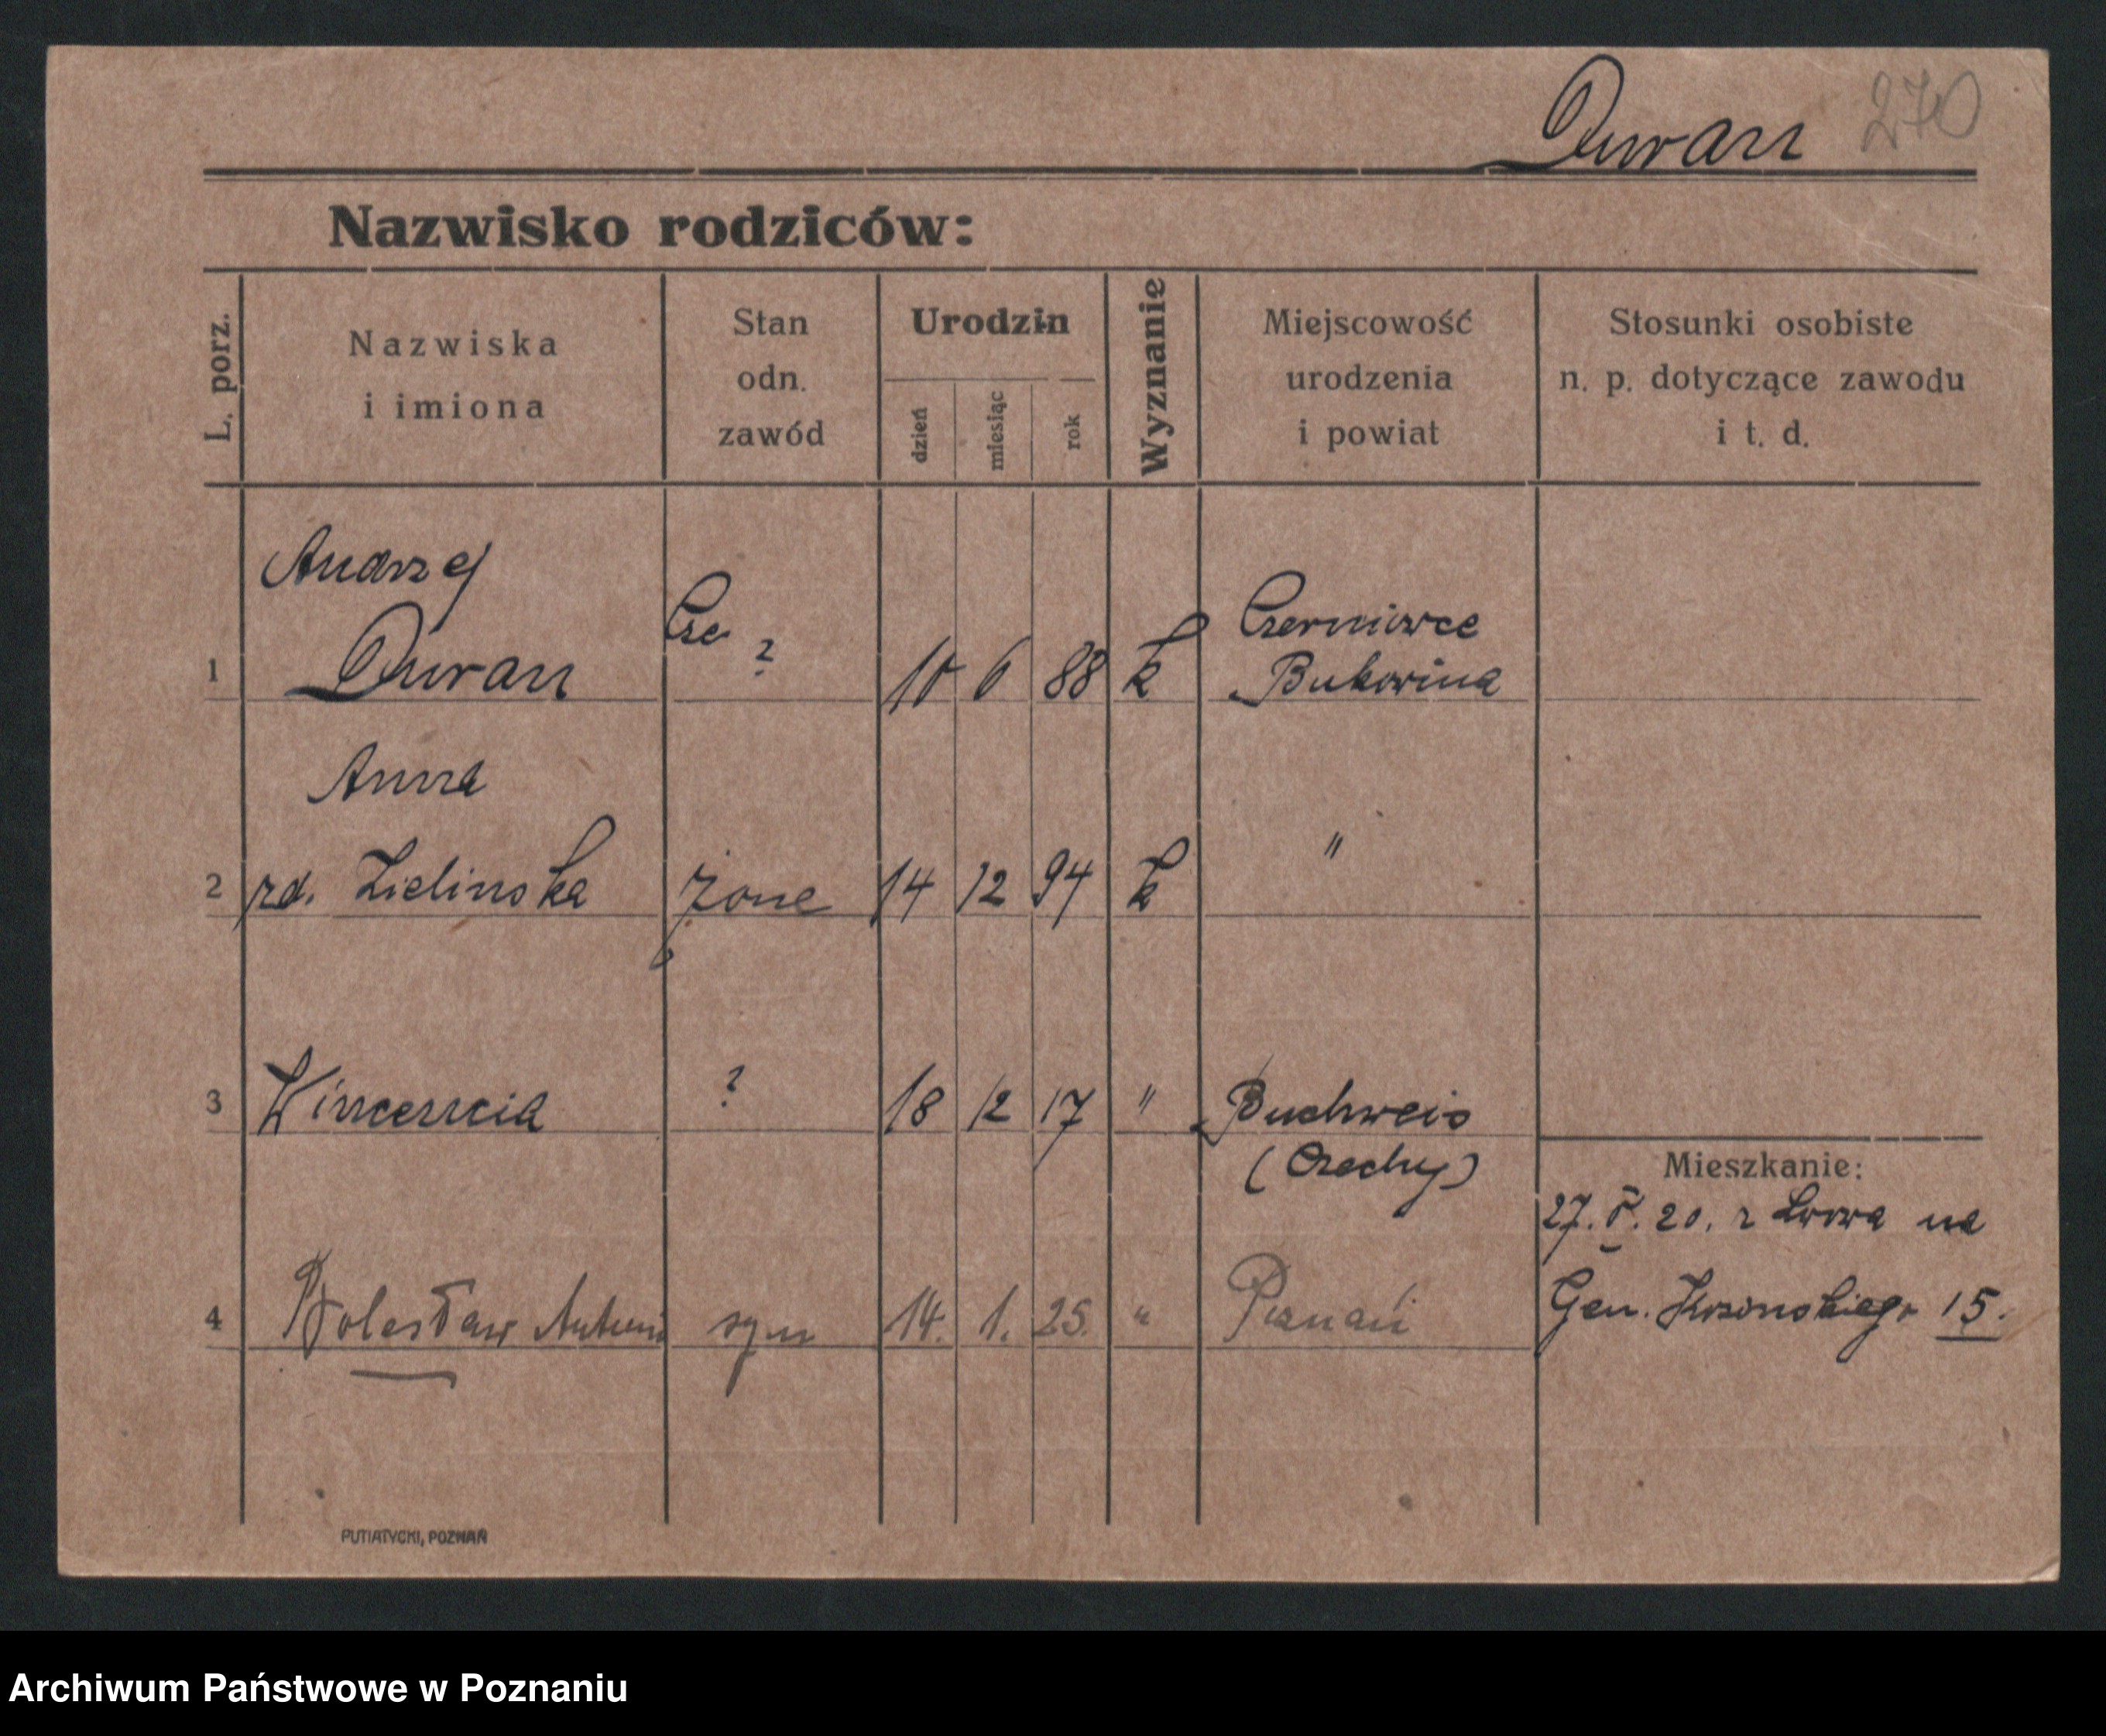 Duran 270
Nazwisko rodziców:
L. porz.
Nazwiska
i imiona
Stan
odn.
zawód
Urodzin
dzień
miesiąc
rok
Wyznanie
Miejscowość
urodzenia
i powiat
Stosunki osobiste
n. p. dotyczące zawodu
i t. d.
Andrzej
1 Duran ? 10 6 88 k Czerniowce
Bukowina
Anna
2 rd. Zielinska żona 14 12 94 k "
3 Wincencia ? 18 12 17 " Buchweis
(Czechy)
Mieszkanie:
27. V. 20. z Lwowa na
Gen. Kosinskiego 15.
4 Bolesław Antoni syn 14. 1. 25. " Poznań
PUTIATYCKI, POZNAŃ
Archiwum Państwowe w Poznaniu